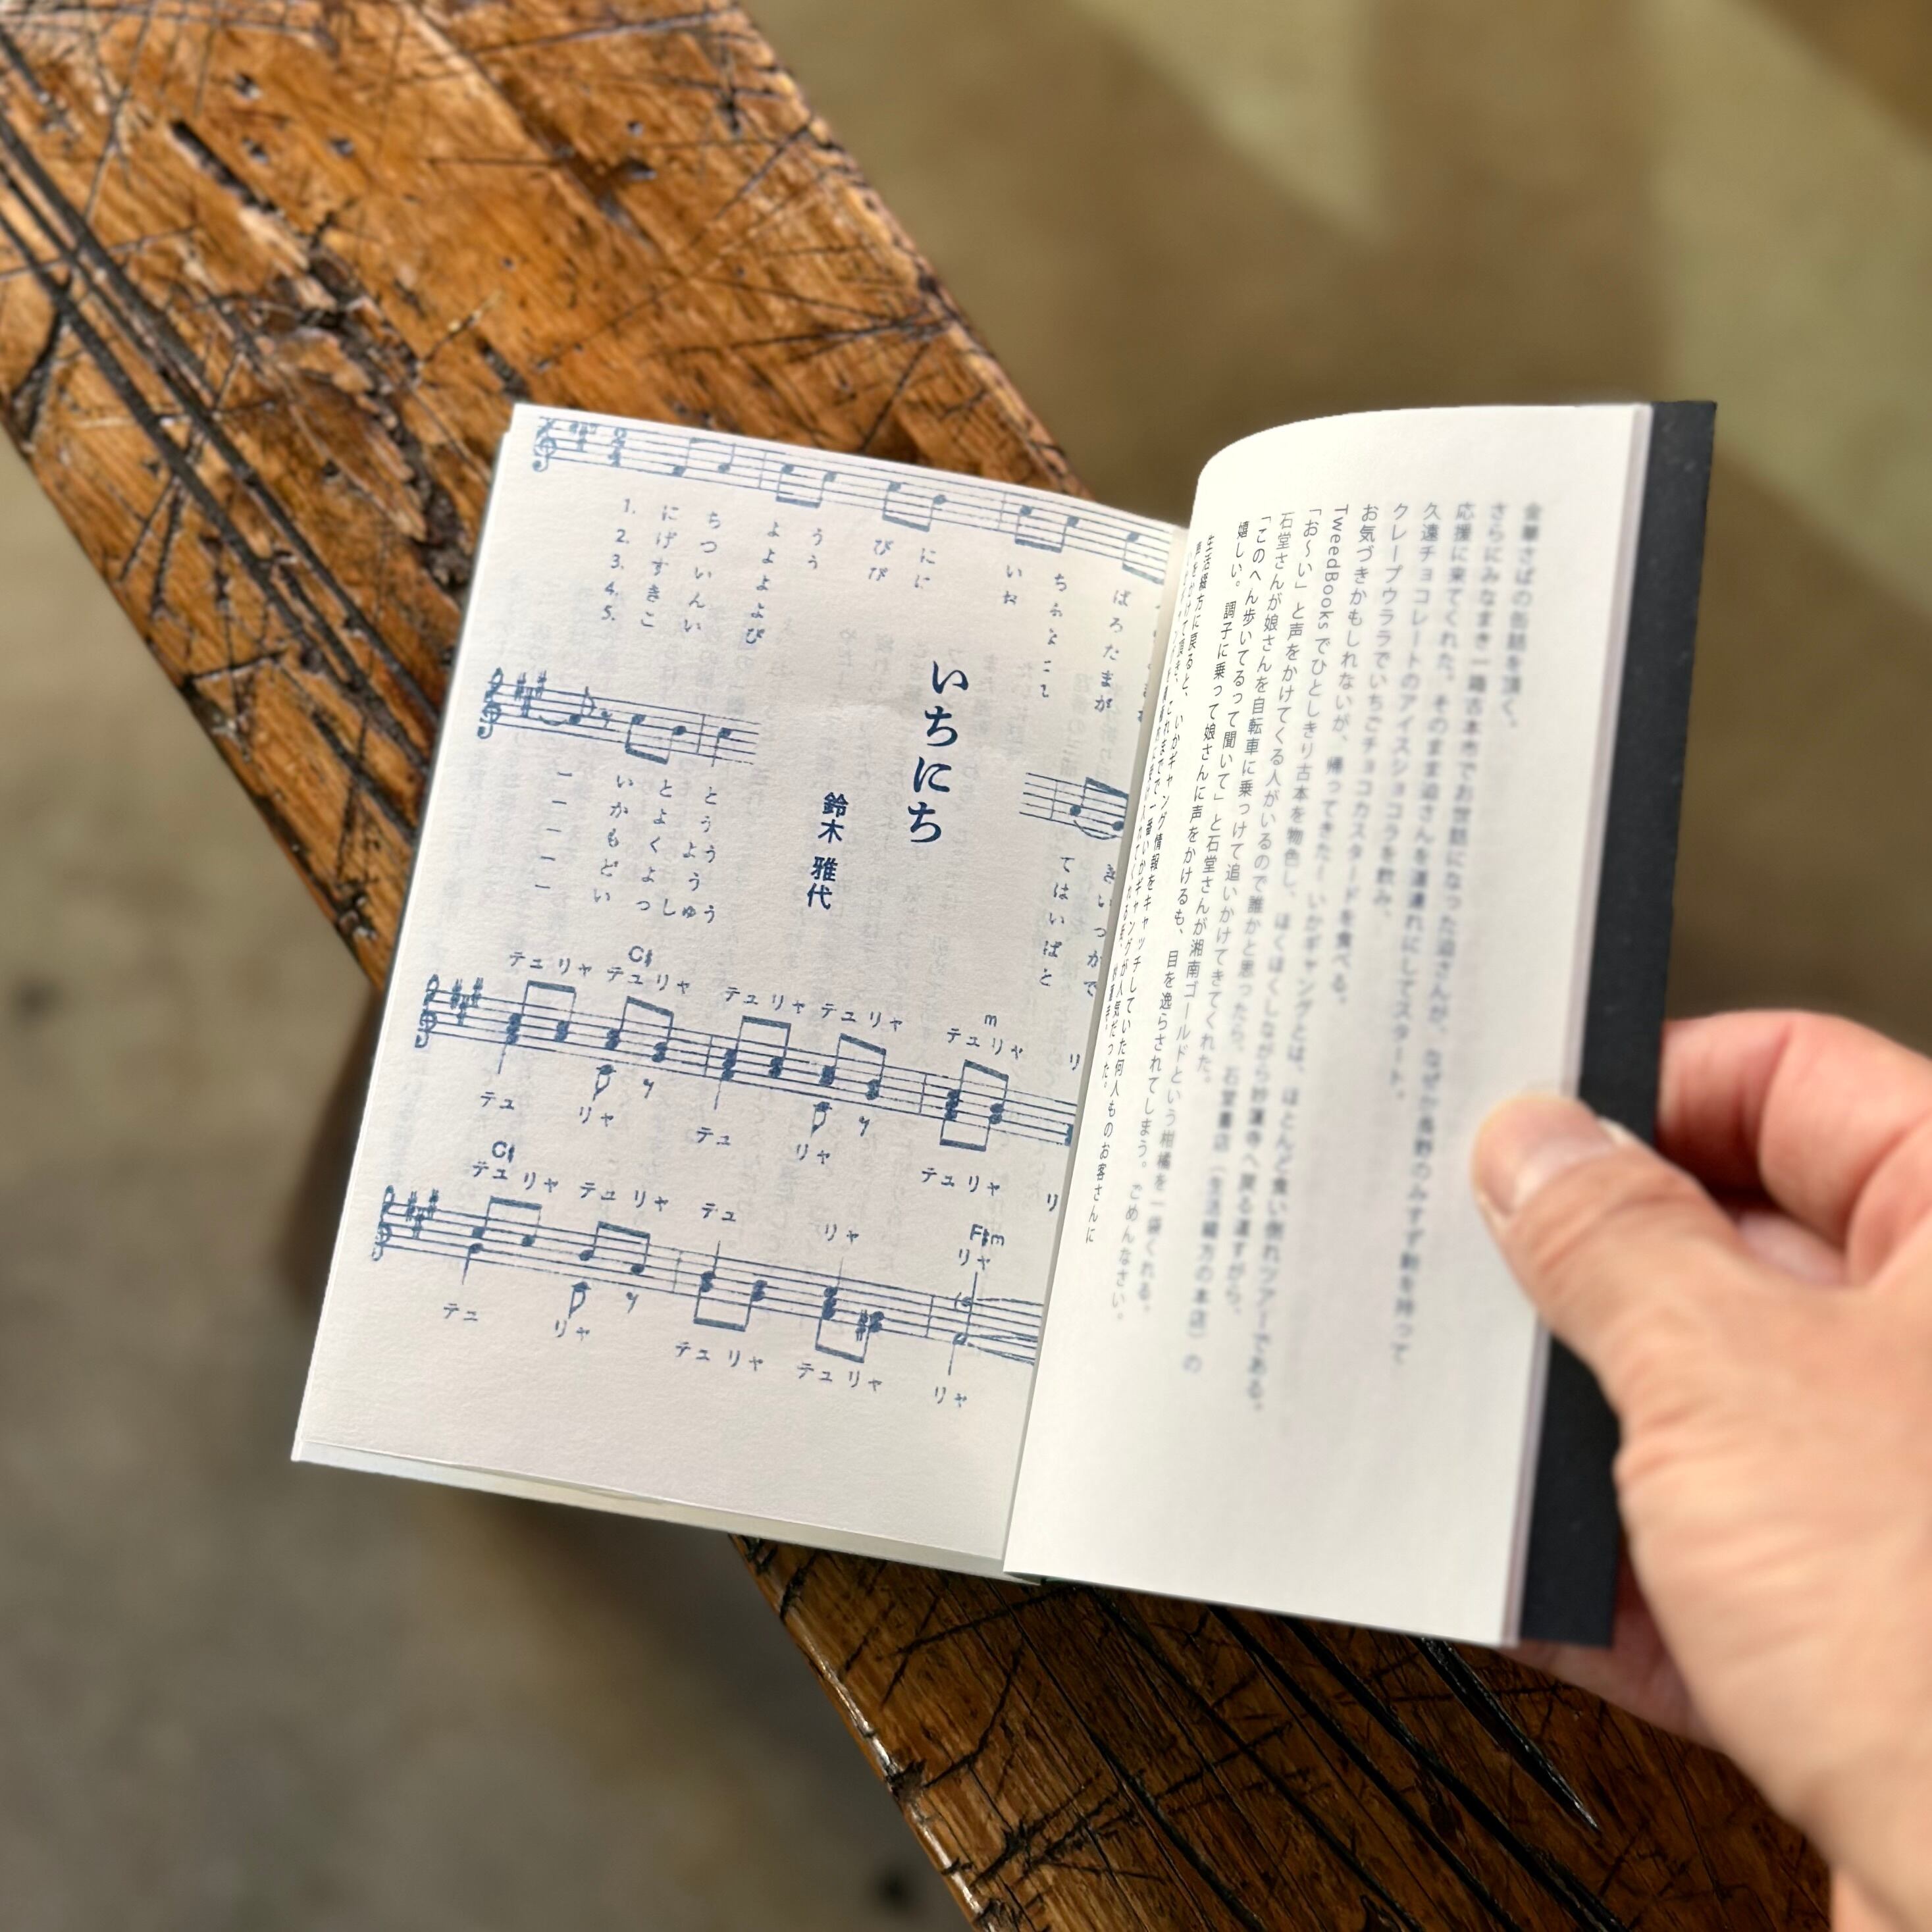 金華さばの缶詰を頂く。
さらにみなまき一箱古本市でお世話になった迫さんが、なぜか長野のみすず飴を持って
応援に来てくれた。そのまま迫さんを道連れにしてスタート。
久遠チョコレートのアイスショコラを飲み、
クレープウララでいちごチョコカスタードを食べる。
お気づきかもしれないが、いかギャングとは、ほとんど食い倒れツアーである。
TweedBooksでひとしきり古本を物色し、ほくほくしながら妙蓮寺へ戻る道すがら、
「お〜い」と声をかけてくる人がいるので誰かと思ったら、石堂書店（生活綴方の本店）の
石堂さんが娘さんを自転車に乗っけて追いかけてきてくれた。
「このへん歩いてるって聞いて」と石堂さんが湘南ゴールドという柑橘を一袋くれる。
嬉しい。調子に乗って娘さんに声をかけるも、目を逸らされてしまう。ごめんなさい。
生活綴方に戻ると、いかギャング情報をキャッチしていた何人ものお客さんに
いちにち
鈴木 雅代
1. に ち よ う び に い ち ば
2. げ つ よ う び に お
3. す い よ び
4. き ん よ
5. こ い び
ー い と と
ー か よ う よ う
ー も く よ う
ー ど よ
ー い つ しゅう
C♯ m
テュ リャ テュ リャ テュ リャ テュ リャ テュ リャ リ
テュ リャ テュ リャ テュ リャ リ
C♯ F♯m
テュ リャ テュ リャ テュ リャ リャ
テュ リャ テュ リャ テュ リャ リャ